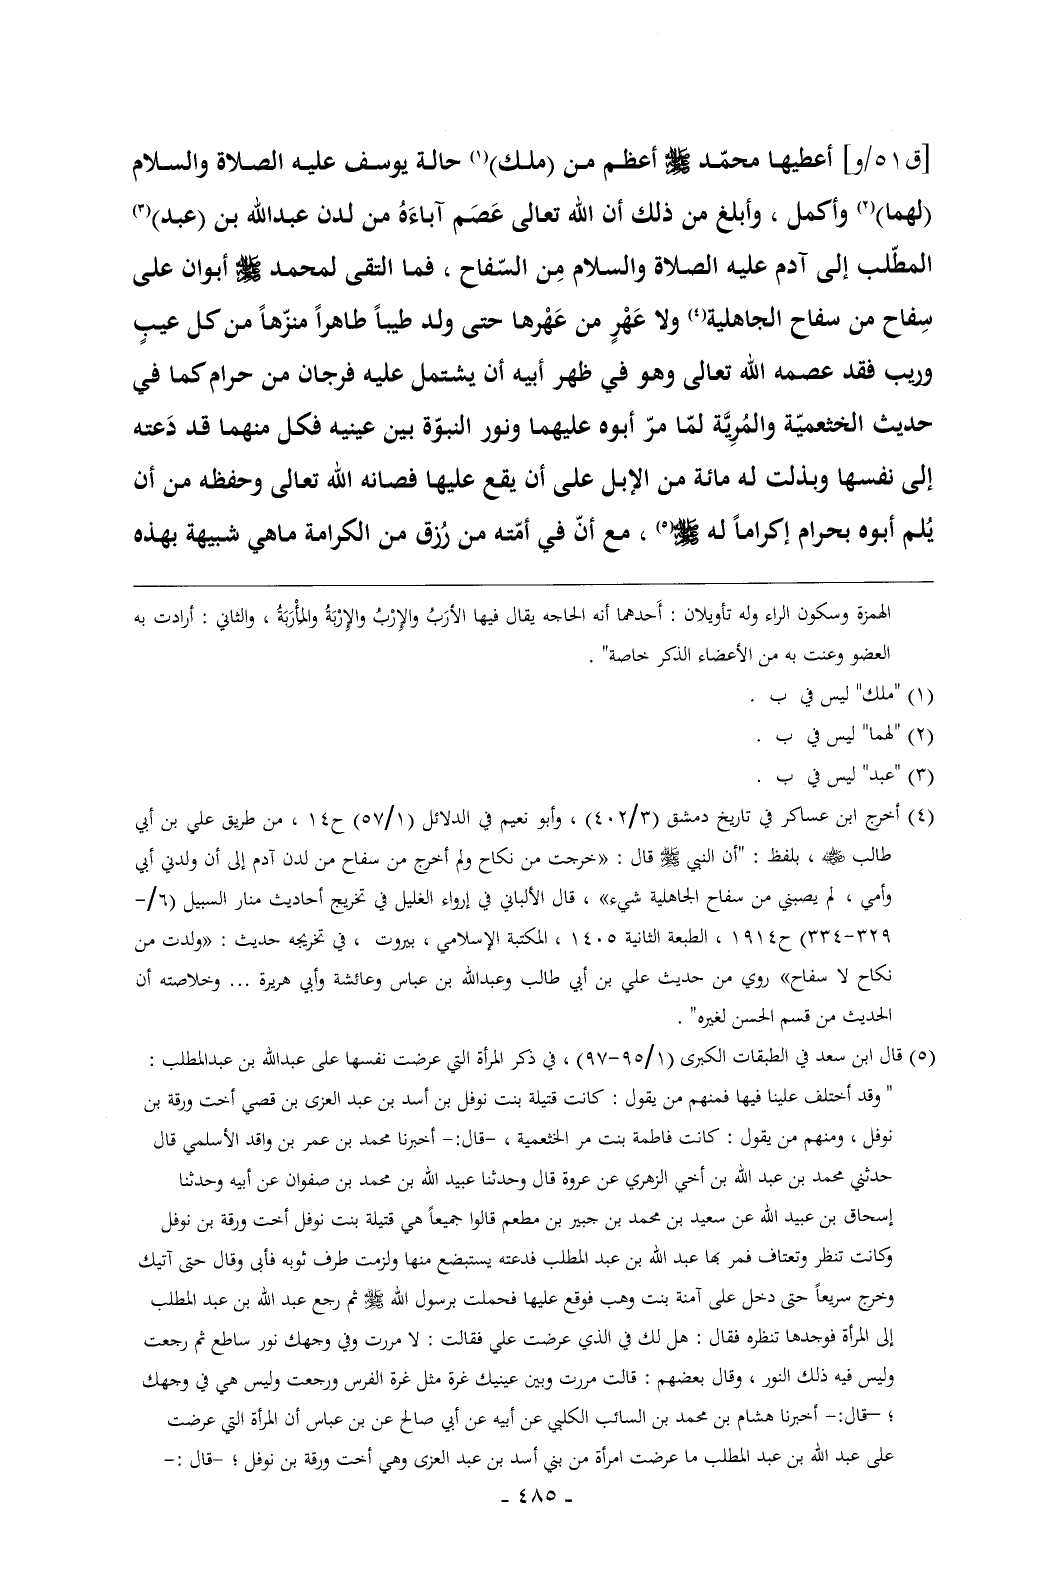 [ق٥١/و] أعطيها محمّد ﷺ أعظم من (ملك)(١) حالة يوسف عليه الصلاة والسلام
(لهما)(٢) وأكمل ، وأبلغ من ذلك أن الله تعالى عَصَم آباءَهُ من لدن عبدالله بن (عبد)(٣)
المطّلب إلى آدم عليه الصلاة والسلام مِن السّفاح ، فما التقى لمحمد ﷺ أبوان على
سِفاح من سفاح الجاهلية(٤) ولا عَهْرٍ من عَهْرها حتى ولد طيباً طاهراً منزّهاً من كل عيبٍ
وريب فقد عصمه الله تعالى وهو في ظهر أبيه أن يشتمل عليه فرجان من حرام كما في
حديث الخثعميّة والمُرِيَّة لمّا مرّ أبوه عليهما ونور النبوّة بين عينيه فكل منهما قد دَعته
إلى نفسها وبذلت له مائة من الإبل على أن يقع عليها فصانه الله تعالى وحفظه من أن
يُلم أبوه بحرام إكراماً له ﷺ(٥) ، مع أنّ في أمّته من رُزق من الكرامة ماهي شبيهة بهذه
الهمزة وسكون الراء وله تأويلان : أَحدهما أنه الحاجه يقال فيها الأرَبُ والإِرْبُ والإِرْبَةُ والمأْرَبَةُ ، والثاني : أرادت به
العضو وعنت به من الأعضاء الذكر خاصة" .
(١) "ملك" ليس في ب .
(٢) "لهما" ليس في ب .
(٣) "عبد" ليس في ب .
(٤) أخرج ابن عساكر في تاريخ دمشق (٤٠٢/٣) ، وأبو نعيم في الدلائل (٥٧/١) ح١٤ ، من طريق علي بن أبي
طالب ﷺ ، بلفظ : "أن النبي ﷺ قال : «خرجت من نكاح ولم أخرج من سفاح من لدن آدم إلى أن ولدني أبي
وأمي ، لم يصبني من سفاح الجاهلية شيء» ، قال الألباني في إرواء الغليل في تخريج أحاديث منار السبيل (٦/-
٣٢٩-٣٣٤) ح١٩١٤ ، الطبعة الثانية ١٤٠٥ ، المكتبة الإسلامي ، بيروت ، في تخريجه حديث : «ولدت من
نكاح لا سفاح» روي من حديث علي بن أبي طالب وعبدالله بن عباس وعائشة وأبي هريرة ... وخلاصته أن
الحديث من قسم الحسن لغيره" .
(٥) قال ابن سعد في الطبقات الكبرى (٩٥/١-٩٧) ، في ذكر المرأة التي عرضت نفسها على عبدالله بن عبدالمطلب :
" وقد أختلف علينا فيها فمنهم من يقول : كانت قتيلة بنت نوفل بن أسد بن عبد العزى بن قصي أخت ورقة بن
نوفل ، ومنهم من يقول : كانت فاطمة بنت مر الخثعمية ، -قال:- أخبرنا محمد بن عمر بن واقد الأسلمي قال
حدثني محمد بن عبد الله بن أخي الزهري عن عروة قال وحدثنا عبيد الله بن محمد بن صفوان عن أبيه وحدثنا
إسحاق بن عبيد الله عن سعيد بن محمد بن جبير بن مطعم قالوا جميعاً هي قتيلة بنت نوفل أخت ورقة بن نوفل
وكانت تنظر وتعتاف فمر بها عبد الله بن عبد المطلب فدعته يستبضع منها ولزمت طرف ثوبه فأبى وقال حتى آتيك
وخرج سريعاً حتى دخل على آمنة بنت وهب فوقع عليها فحملت برسول الله ﷺ ثم رجع عبد الله بن عبد المطلب
إلى المرأة فوجدها تنظره فقال : هل لك في الذي عرضت علي فقالت : لا مررت وفي وجهك نور ساطع ثم رجعت
وليس فيه ذلك النور ، وقال بعضهم : قالت مررت وبين عينيك غرة مثل غرة الفرس ورجعت وليس هي في وجهك
؛ -قال:- أخبرنا هشام بن محمد بن السائب الكلبي عن أبيه عن أبي صالح عن بن عباس أن المرأة التي عرضت
على عبد الله بن عبد المطلب ما عرضت امرأة من بني أسد بن عبد العزى وهي أخت ورقة بن نوفل ؛ -قال :-
- ٤٨٥ -